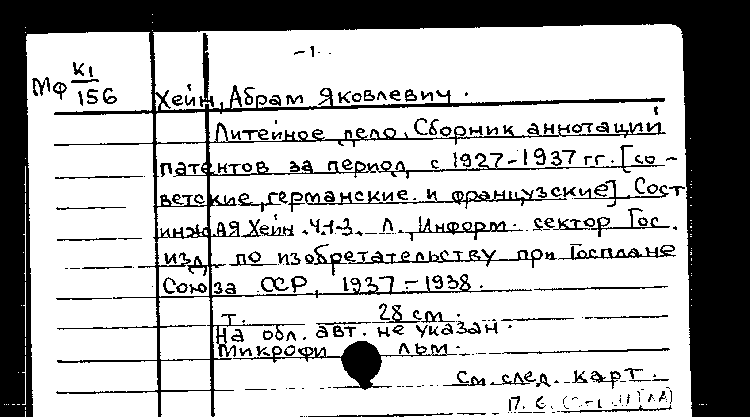 -1-
Мф К1
156
Хейн, Абрам Яковлевич.
Литейное дело. Сборник аннотаций
патентов за период с 1927-1937 гг. [со-
ветские, германские и французские]. Сост.
инж. А.Я Хейн. Ч.1-3. Л., Информ. сектор Гос.
изд. по изобретательству при Госплане
Союза ССР, 1937-1938.
т. 28 см.
На обл. авт. не указан.
Микрофильм.
См. след. карт.